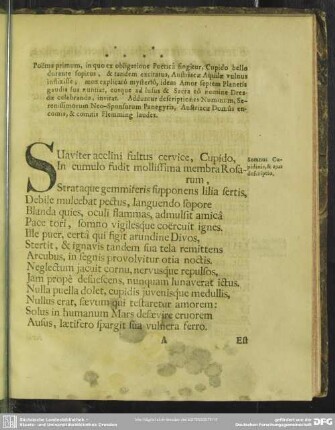 Poësis primum, in quo ex obligatione Poëticâ fingitur, Cupido bello
durante sopitus, & tandem excitatus, Austriacæ Aquilæ vulnus
inflixisse, nunc explicato mysterio, idem Amor septem Planetis
gaudia sua nuntiat, eosque ad lusus & Sacra eô nomine Drese
dæ celebranda, invitat. Adduntur descriptiones Numinum, Se-
renissimorum Neo-Sponsorum Panegyris, Austriacæ Domûs en-
comia, & comitis Flemming laudes.
SUaviter acclini fultus cervice, Cupido,
In cumulo fudit mollissima membra Rosa-
rum,
Somnus Cu-
pidinis, & ejus
descriptio.
Strataque gemmiferis supponens lilia sertis,
Debile mulcebat pectus, languendo sopore
Blanda quies, oculi flammas, admulsit amicâ
Pace tori, somno vigilesque coërcuit ignes.
Ille puer, certâ qui figit arundine Divos,
Stertit, & ignavis tandem sua tela remittens
Arcubus, in segnis provolvitur otia noctis.
Neglectum jacuit cornu, nervusque repulsos,
Jam propè desuescens, nunquam lunaverat ictus.
Nulla puella dolet, cupidis juvenisque medullis,
Nullus erat, sævum qui testaretur amorem:
Solus in humanum Mars desævire cruorem
Ausus, lætifero spargit sua vulnera ferro.
A
Est